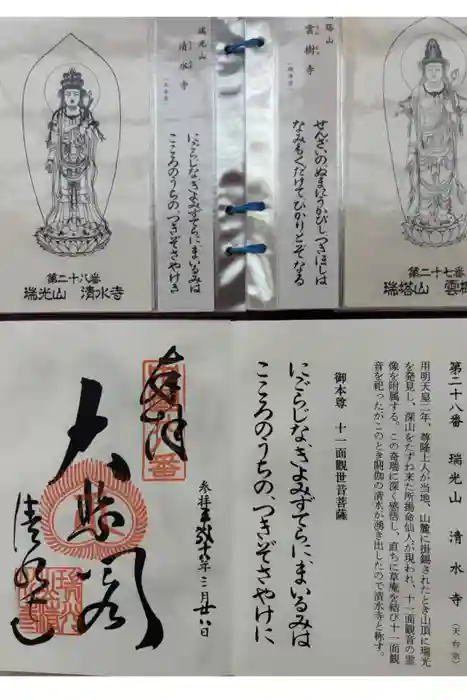 瑞光山
清水寺
(天台宗)
にごらじな、きよみずでらに、まいるみは
こころのうちの、つきぞさやけき
第二十八番
瑞光山 清水寺
雲樹寺
せんざいの
なみもくだけて ひかりとぞなる
第二十七番
瑞塔山 雲樹
第二十八番 瑞光山 清水寺 (天台宗)
用明天皇二年、尊隆上人が当地、山麓に掛錫されたとき山頂に瑞光
を発見し、深山をたずね来た所揚命仙人が現われ、十一面観音の霊
像を附属する。この奇瑞に深く感悟し、直ちに草庵を結び十一面観
音を祀ったがこのとき閼伽の清水が湧き出したので清水寺と称す。
御本尊 十一面觀世音菩薩
にごらじな、きよみずでらに、まいるみは
こころのうちの、つきぞさやけに
参拝平成
年二月廿八日
奉拝
大悲閣
清水寺